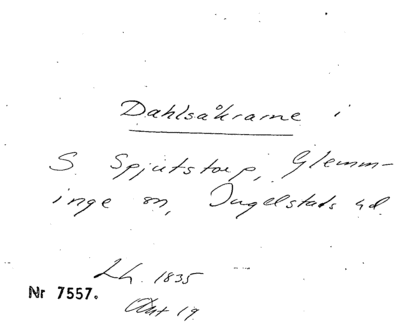 Dahlsåkrarne i
S. Spjutstorp, Glemm-
inge sn, Ingelstads hd.
Lh. 1835
Nr 7557.
Akt 19